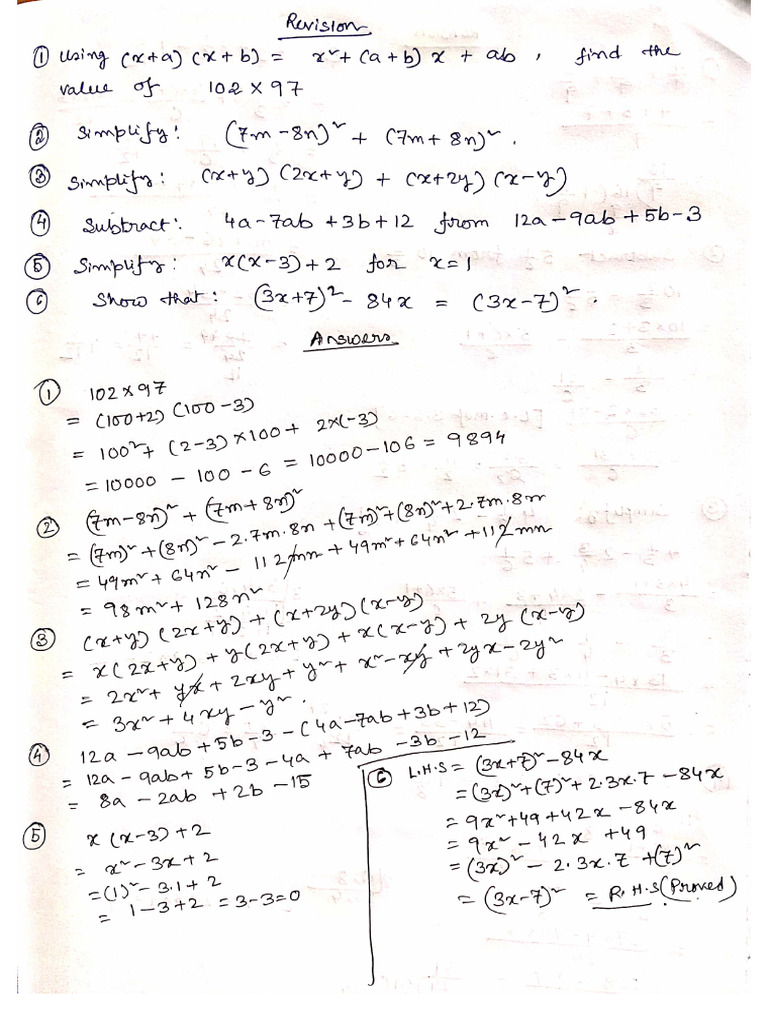 Revision
① Using (x+a) (x+b) = x²+(a+b) x + ab, find the
value of 102×97
② Simplify: (7m-8n)² + (7m+8n)².
③ Simplify: (x+y) (2x+y) + (x+2y) (x-y)
④ Subtract: 4a-7ab+3b+12 from 12a-9ab+5b-3
⑤ Simplify: x(x-3)+2 for x=1
⑥ Show that: (3x+7)²-84x = (3x-7)².
Answers
① 102×97
= (100+2) (100-3)
= 100²+ (2-3)×100+ 2×(-3)
= 10000 - 100 - 6 = 10000-106 = 9894
② (7m-8n)² + (7m+8n)²
= (7m)²+(8n)²-2.7m.8n+(7m)²+(8n)²+2.7m.8n
= 49m²+64n²-112mn+49m²+64n²+112mn
= 98m²+128n²
③ (x+y) (2x+y) + (x+2y) (x-y)
= x(2x+y) + y(2x+y) + x(x-y) + 2y (x-y)
= 2x²+ yx + 2xy + y² + x² - xy + 2yx - 2y²
= 3x²+4xy-y².
④ 12a - 9ab+5b-3-(4a-7ab+3b+12)
= 12a - 9ab+ 5b-3-4a + 7ab -3b -12
= 8a - 2ab + 2b -15
⑤ x (x-3)+2
= x²-3x+2
=(1)²-3.1+2
= 1-3+2 =3-3=0
⑥ L.H.S = (3x+7)²-84x
=(3x)²+(7)²+2.3x.7 -84x
= 9x²+49+42x -84x
= 9x² - 42x +49
=(3x)² - 2.3x.7 +(7)²
= (3x-7)² = R.H.S (Proved)